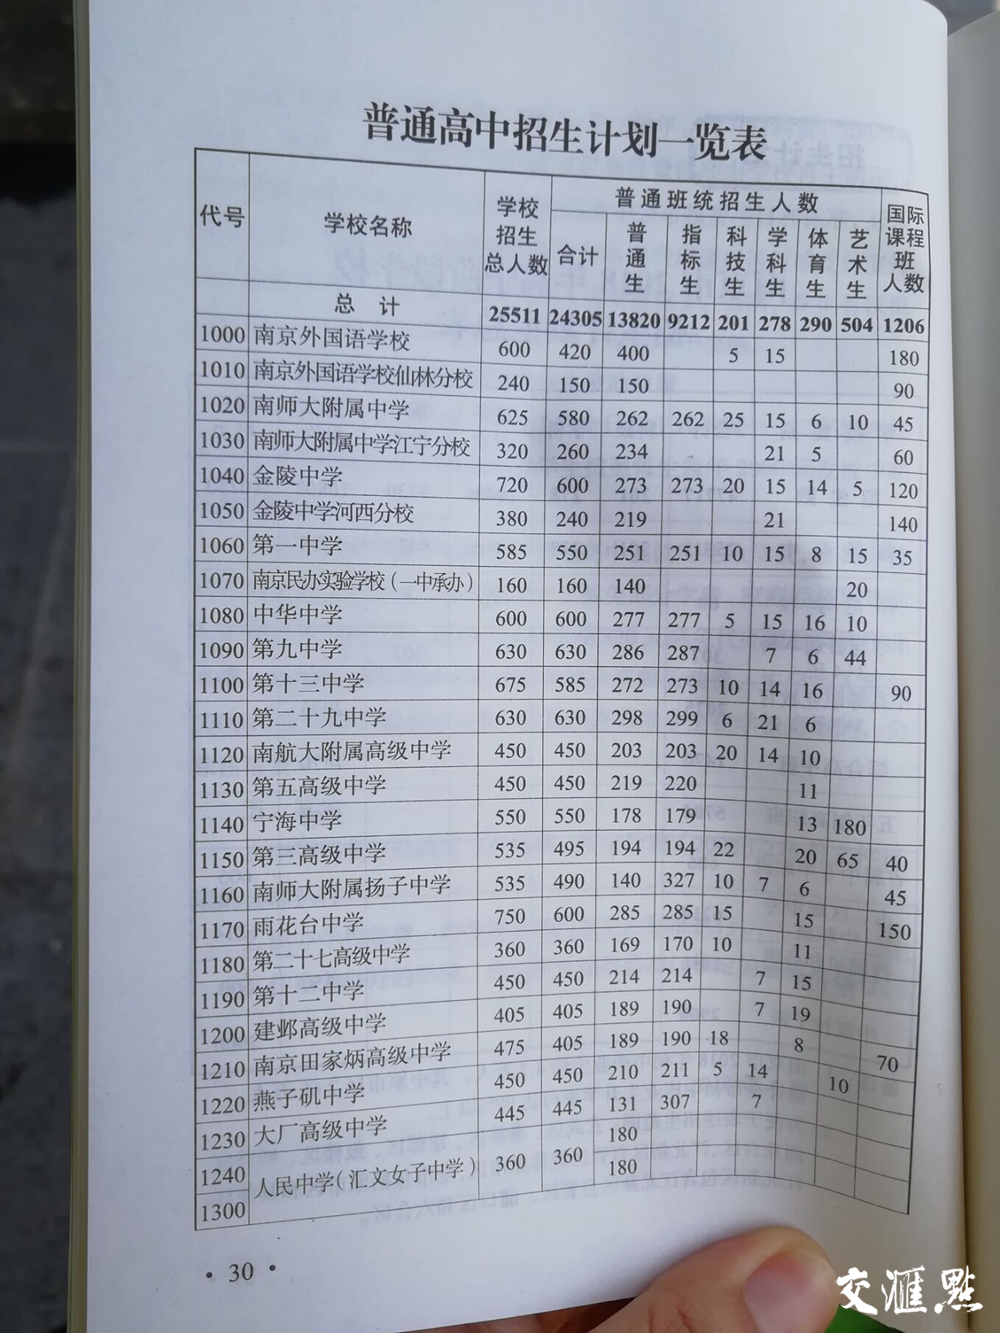 普通高中招生计划一览表
代号 学校名称 学校招生总人数 普通班统招生人数 国际课程班人数
合计 普通生 指标生 科技生 学科生 体育生 艺术生
总 计 25511 24305 13820 9212 201 278 290 504 1206
1000 南京外国语学校 600 420 400 5 15 180
1010 南京外国语学校仙林分校 240 150 150 90
1020 南师大附属中学 625 580 262 262 25 15 6 10 45
1030 南师大附属中学江宁分校 320 260 234 21 5 60
1040 金陵中学 720 600 273 273 20 15 14 5 120
1050 金陵中学河西分校 380 240 219 21 140
1060 第一中学 585 550 251 251 10 15 8 15 35
1070 南京民办实验学校（一中承办） 160 160 140 20
1080 中华中学 600 600 277 277 5 15 16 10
1090 第九中学 630 630 286 287 7 6 44
1100 第十三中学 675 585 272 273 10 14 16 90
1110 第二十九中学 630 630 298 299 6 21 6
1120 南航大附属高级中学 450 450 203 203 20 14 10
1130 第五高级中学 450 450 219 220 11
1140 宁海中学 550 550 178 179 13 180
1150 第三高级中学 535 495 194 194 22 20 65 40
1160 南师大附属扬子中学 535 490 140 327 10 7 6 45
1170 雨花台中学 750 600 285 285 15 15 150
1180 第二十七高级中学 360 360 169 170 10 11
1190 第十二中学 450 450 214 214 7 15
1200 建邺高级中学 405 405 189 190 7 19
1210 南京田家炳高级中学 475 405 189 190 18 8 70
1220 燕子矶中学 450 450 210 211 5 14 10
1230 大厂高级中学 445 445 131 307 7
1240 人民中学（汇文女子中学） 360 360 180
1300 180
· 30 ·
交汇點